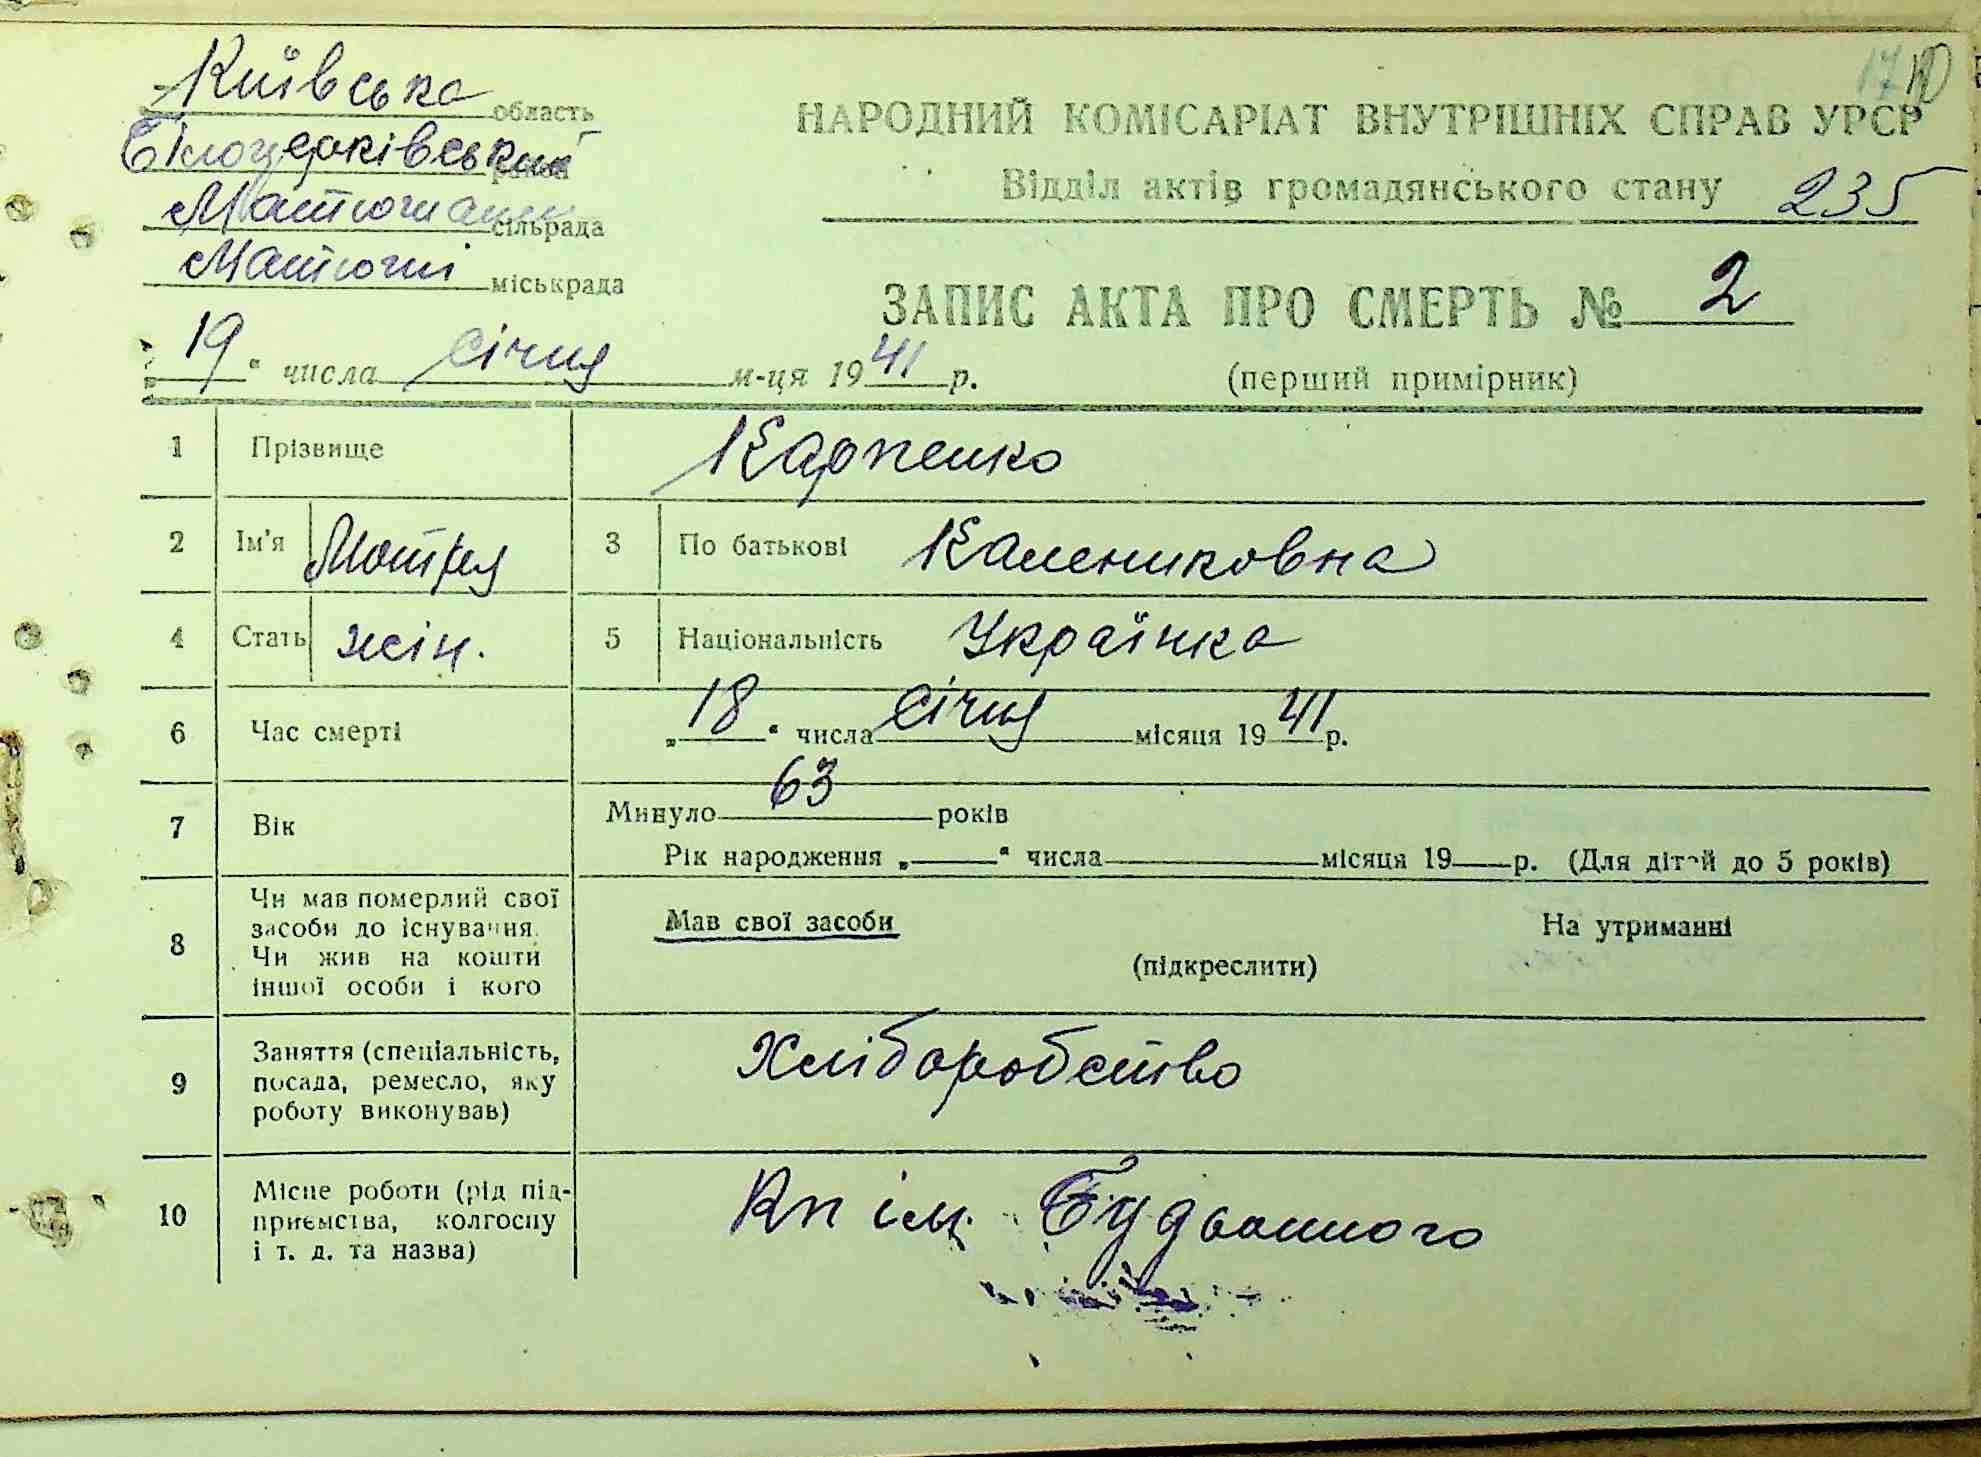 Київська область
НАРОДНИЙ КОМІСАРІАТ ВНУТРІШНІХ СПРАВ УРСР
Білоцерківський район
Відділ актів громадянського стану 235
сільрада
Матюші міськрада
ЗАПИС АКТА ПРО СМЕРТЬ № 2
„19“ числа січня м-ця 1941 р.
(перший примірник)
1 Прізвище Карпенко
2 Ім'я Мотря 3 По батькові Калениковна
4 Стать жін. 5 Національність Українка
6 Час смерті „18“ числа січня місяця 1941 р.
7 Вік Минуло 63 років
Рік народження „ “ числа місяця 19 р. (Для дітей до 5 років)
8 Чи мав померлий свої засоби до існування.
Чи жив на кошти іншої особи і кого
Мав свої засоби На утриманні
(підкреслити)
9 Заняття (спеціальність, посада, ремесло, яку роботу виконував) Хліборобство
10 Місце роботи (рід підприємства, колгоспу і т. д. та назва) Кп ім. Будьонного